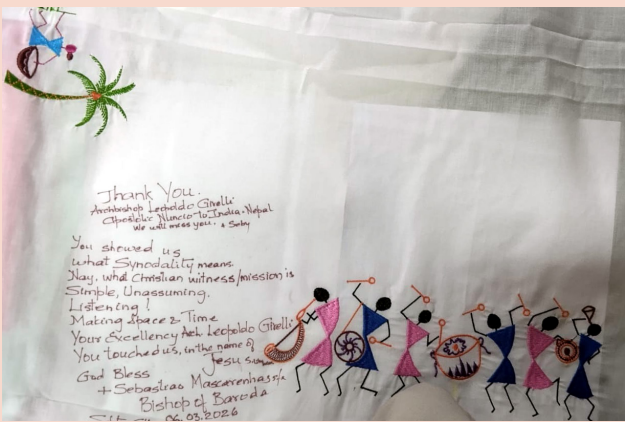 Thank You.
Archbishop Leopoldo Girelli
Apostolic Nuncio to India - Nepal
We will miss you.
You showed us
what Synodality means.
Nay, what Christian witness/mission is
Simple, Unassuming.
Listening!
Making Space & Time
Your Excellency Leopoldo Girelli
You touched us, in the name of
Jesus
God Bless
+ Sebastiao Mascarenhas
Bishop of Baroda
06.03.2026